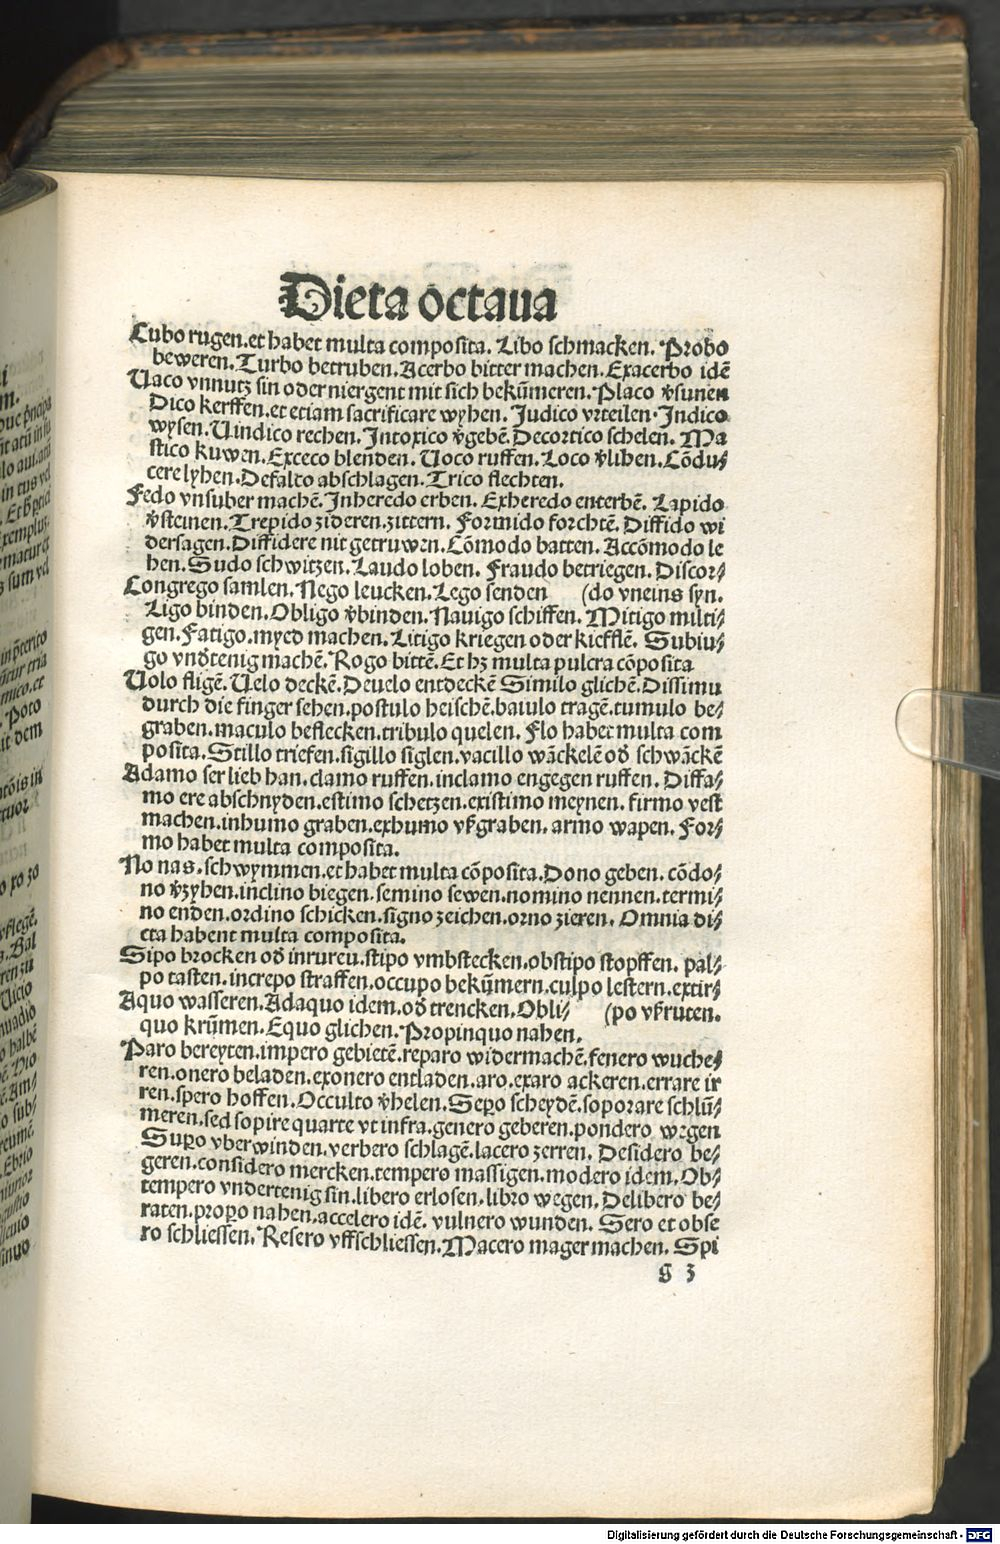 Dieta octaua
Cubo rugen.et habet multa composita. Libo schmacken. Probo
beweren. Turbo betruben. Acerbo bitter machen. Exacerbo idē
Uaco vnnutz sin oder niergent mit sich bekūmeren. Placo v̄sunen
Dico kerffen.et etiam sacrificare wyhen. Judico vrteilen. Indico
wysen. Uindico rechen. Intoxico v̄gebē. Decortico schelen. Ma
stico kuwen. Exceco blenden. Uoco ruffen. Loco v̄lihen. Cōdu⸗
cere lyhen. Defalco abschlagen. Trico flechten.
Fedo vnsuber machē. Inheredo erben. Exheredo enterbē. Lapido
v̄steinen. Trepido zideren.zittern. Formido forchtē. Diffido wi
dersagen. Diffidere nit getruwen. Cōmodo batten. Accōmodo le
hen. Sudo schwitzen. Laudo loben. Fraudo betriegen. Discor⸗
Congrego samlen. Nego leucken. Lego senden (do vneins syn.
Ligo binden. Obligo v̄binden. Nauigo schiffen. Mitigo milti⸗
gen. Fatigo.myed machen. Litigo kriegen oder kiefflē. Subiu⸗
go vnd̄tenig machē. Rogo bittē. Et hȝ multa pulcra cōposita
Uolo fligē. Uelo deckē. Deuelo entdeckē Similo glichē. Dissimu
durch die finger sehen.postulo heischē.baiulo tragē.tumulo be⸗
graben.maculo beflecken.tribulo quelen. Flo habet multa com
posita. Stillo triefen.sigillo siglen.vacillo wāckelē od̄ schwāckē
Adamo ser lieb han.clamo ruffen.inclamo engegen ruffen. Diffa⸗
mo ere abschnyden.estimo schetzen.existimo meynen. firmo vest
machen.inhumo graben.exhumo vßgraben. armo wapen. For⸗
mo habet multa composita.
No nas.schwymmen.et habet multa cōposita. Dono geben. cōdo⸗
no v̄zyhen.inclino biegen.semino sewen.nomino nennen.termi⸗
no enden.ordino schicken.signo zeichen.orno zieren. Omnia di⸗
cta habent multa composita.
Sipo brocken od̄ inrureu.stipo vmbstecken.obstipo stopffen. pal⸗
po tasten.increpo straffen.occupo bekūmern.culpo lestern.extir⸗
Aquo wasseren. Adaquo idem.od̄ trencken. Obli⸗ (po vßruten.
quo krūmen. Equo glichen. Propinquo nahen.
Paro bereyten.impero gebietē.reparo widermachē.fenero wuche⸗
ren.onero beladen.exonero entladen.aro.exaro ackeren.errare ir
ren.spero hoffen. Occulto v̄helen. Sepo scheydē.soporare schlū⸗
meren.sed sopire quarte vt infra.genero geberen.pondero wegen
Supo vberwinden.verbero schlagē.lacero zerren. Desidero be⸗
geren.considero mercken.tempero massigen.modero idem. Ob⸗
tempero vndertenig sin.libero erlosen.libro wegen. Delibero be⸗
raten.propo nahen.accelero idē. vulnero wunden. Sero et obse
ro schliessen. Resero vffschliessen. Macero mager machen. Spi
g 3
Digitalisierung gefördert durch die Deutsche Forschungsgemeinschaft - DFG